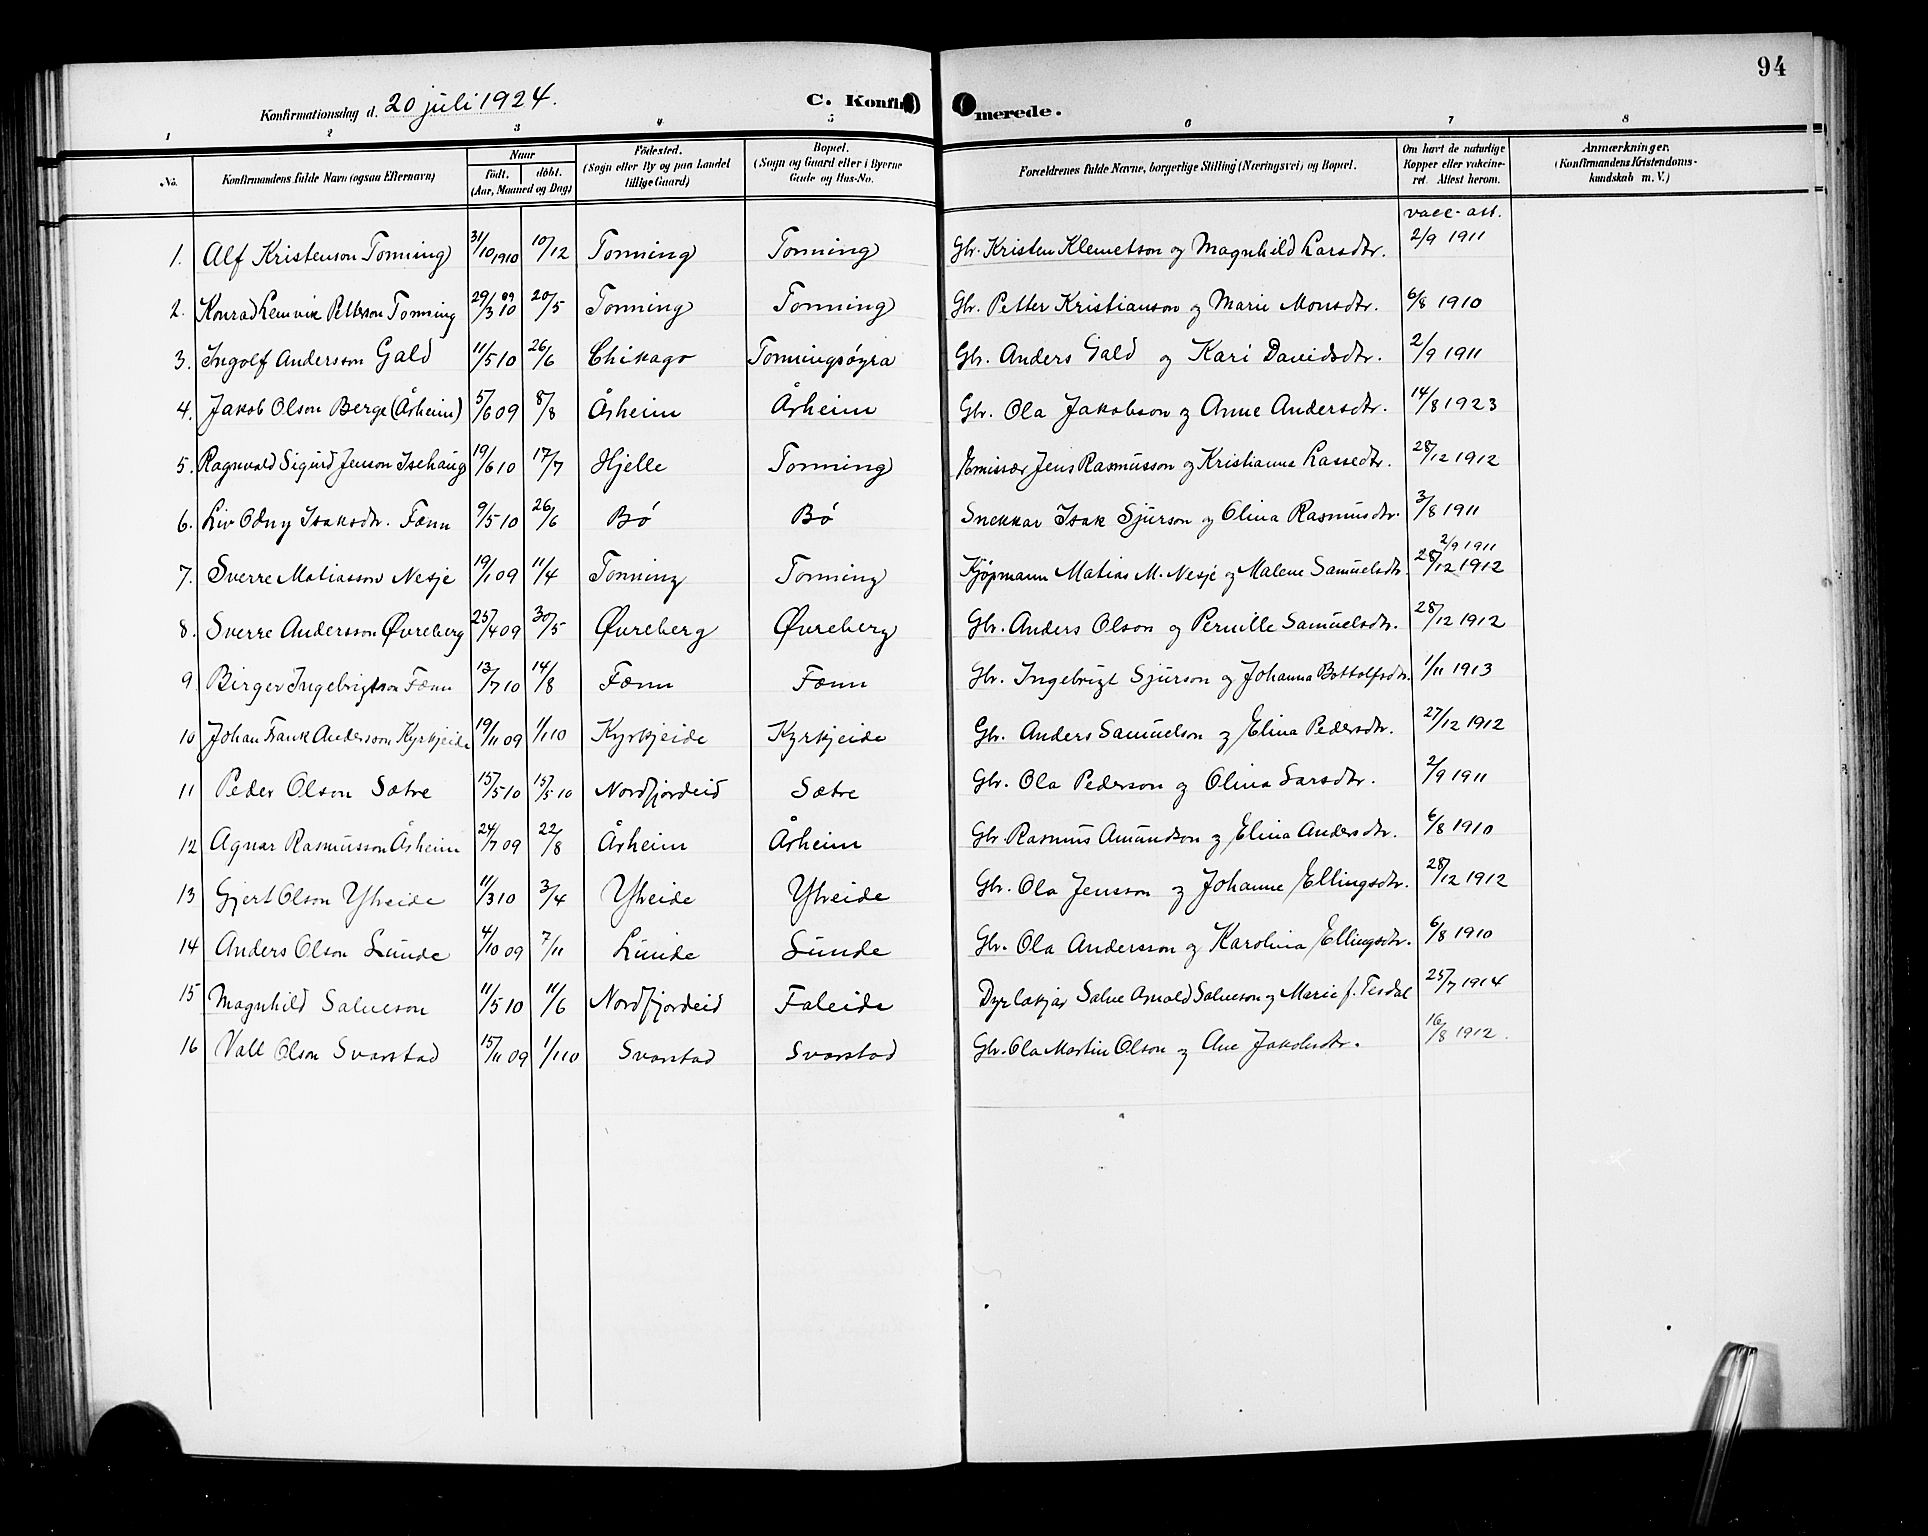 94
Konfirmationsdag d. 20 juli 1924. C. Konfir merede.
1 2 3 4 5 6 7 8
No. Konfirmandens fulde Navn (ogsaa Efternavn) Naar födt. döbt. (Aar, Maaned og Dag) Födested. (Sogn eller By og paa Landet tillige Gaard) Bopæl. (Sogn og Gaard eller i Byerne Gade og Hus-No. Forældrenes fulde Navne, borgerlige Stilling (Næringsvei) og Bopæl. Om havt de naturlige Kopper eller vakcineret. Attest herom. Anmærkninger. (Konfirmandens Kristendomskundskab m. V.)
vacc. att.
1. Alf Kristenson Tonning 31/10 1910 10/12 Tonning Tonning Gbr. Kristen Klemetson og Magnhild Larsdtr. 2/9 1911
2. Konrad Lemvik Petterson Tonning 29/3 09 10 20/5 Tonning Tonning Gbr. Petter Kristianson og Marie Monsdtr. 6/8 1910
3. Ingolf Andersson Gald 11/5 10 26/6 Chikago Tonningsøyra Gbr. Anders Gald og Kari Davidsdtr. 2/9 1911
4. Jakob Olson Berge (Årheim) 5/6 09 8/8 Årheim Årheim Gbr. Ola Jakobson og Anne Andersdtr. 14/8 1923
5. Ragnvald Sigurd Jenson Isehaug 19/6 10 17/7 Hjelle Tonning Emissær Jens Rasmusson og Kristianne Lassedtr. 28/12 1912
6. Liv Odny Isaksdtr. Fænn 9/5 10 26/6 Bø Bø Snekkar Isak Sjurson og Olina Rasmusdtr. 3/8 1911
2/9 1911
7. Sverre Matiasson Nesje 19/1 09 11/4 Tonning Tonning Kjøpmann Matias M. Nesje og Malene Samuelsdtr. 28/12 1912
8. Sverre Andersson Øvreberg 25/4 09 30/5 Øvreberg Øvreberg Gbr. Anders Olson og Pernille Samuelsdtr. 28/12 1912
9 Birger Ingebrigtson Fænn 13/7 10 14/8 Fænn Fænn Gbr. Ingebrigt Sjurson og Johanna Bottolfsdtr. 1/11 1913
10 Johan Frank Andersson Kyrkjeide 19/11 09 1/1 10 Kyrkjeide Kyrkjeide Gbr. Anders Samuelson og Elina Pedersdtr. 27/12 1912
11 Peder Olson Sætre 15/5 10 15/5 10 Nordfjordeid Sætre Gbr. Ola Pederson og Olina Larsdtr. 2/9 1911
12 Agnar Rasmusson Årheim 24/7 09 22/8 Årheim Årheim Gbr. Rasmus Amundson og Elina Andersdtr. 6/8 1910
13 Gjert Olson Ytreide 11/3 10 3/4 Ytreide Ytreide Gbr. Ola Jensson og Johanne Ellingsdtr. 28/12 1912
14 Anders Olson Lunde 4/10 09 7/11 Lunde Lunde Gbr. Ola Andersson og Karolina Ellingsdtr. 6/8 1910
15 Magnhild Salveson 11/5 10 11/6 Nordfjordeid Faleide Dyrlækjar Salve Arnold Salveson og Marie f. Tesdal 25/7 1914
16 Vall Olson Svarstad 15/11 09 1/1 10 Svarstad Svarstad Gbr. Ola Martin Olson og Ane Jakobsdtr. 16/8 1912.